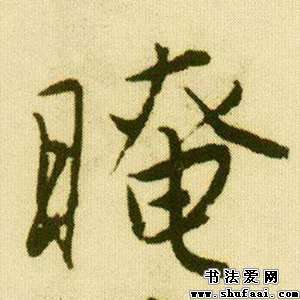 晻
书法爱网
www.shufaai.com